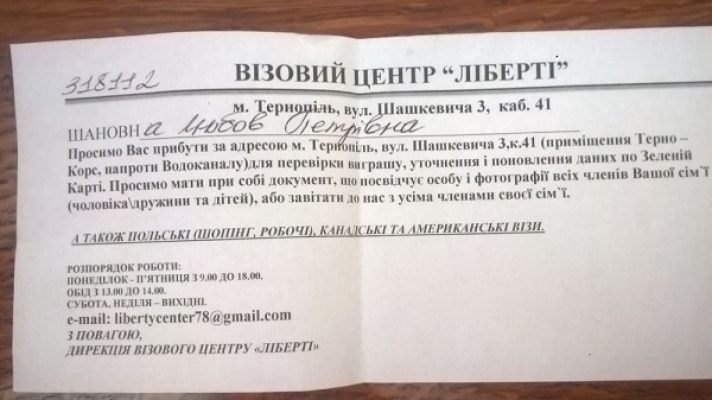 318112
ВІЗОВИЙ ЦЕНТР “ЛІБЕРТІ”
м. Тернопіль, вул. Шашкевича 3, каб. 41
ШАНОВНа Любов Петрівна
Просимо Вас прибути за адресою м. Тернопіль, вул. Шашкевича 3,к.41 (приміщення Терно –
Корс, напроти Водоканалу)для перевірки виграшу, уточнення і поновлення даних по Зеленій
Карті. Просимо мати при собі документ, що посвідчує особу і фотографії всіх членів Вашої сім`ї
(чоловіка\дружини та дітей), або завітати до нас з усіма членами своєї сім`ї.
А ТАКОЖ ПОЛЬСЬКІ (ШОПІНГ, РОБОЧІ), КАНАДСЬКІ ТА АМЕРИКАНСЬКІ ВІЗИ.
РОЗПОРЯДОК РОБОТИ:
ПОНЕДІЛОК - П’ЯТНИЦЯ З 9.00 ДО 18.00.
ОБІД З 13.00 ДО 14.00.
СУБОТА, НЕДІЛЯ – ВИХІДНІ.
e-mail: libertycenter78@gmail.com
З ПОВАГОЮ,
ДИРЕКЦІЯ ВІЗОВОГО ЦЕНТРУ «ЛІБЕРТІ»